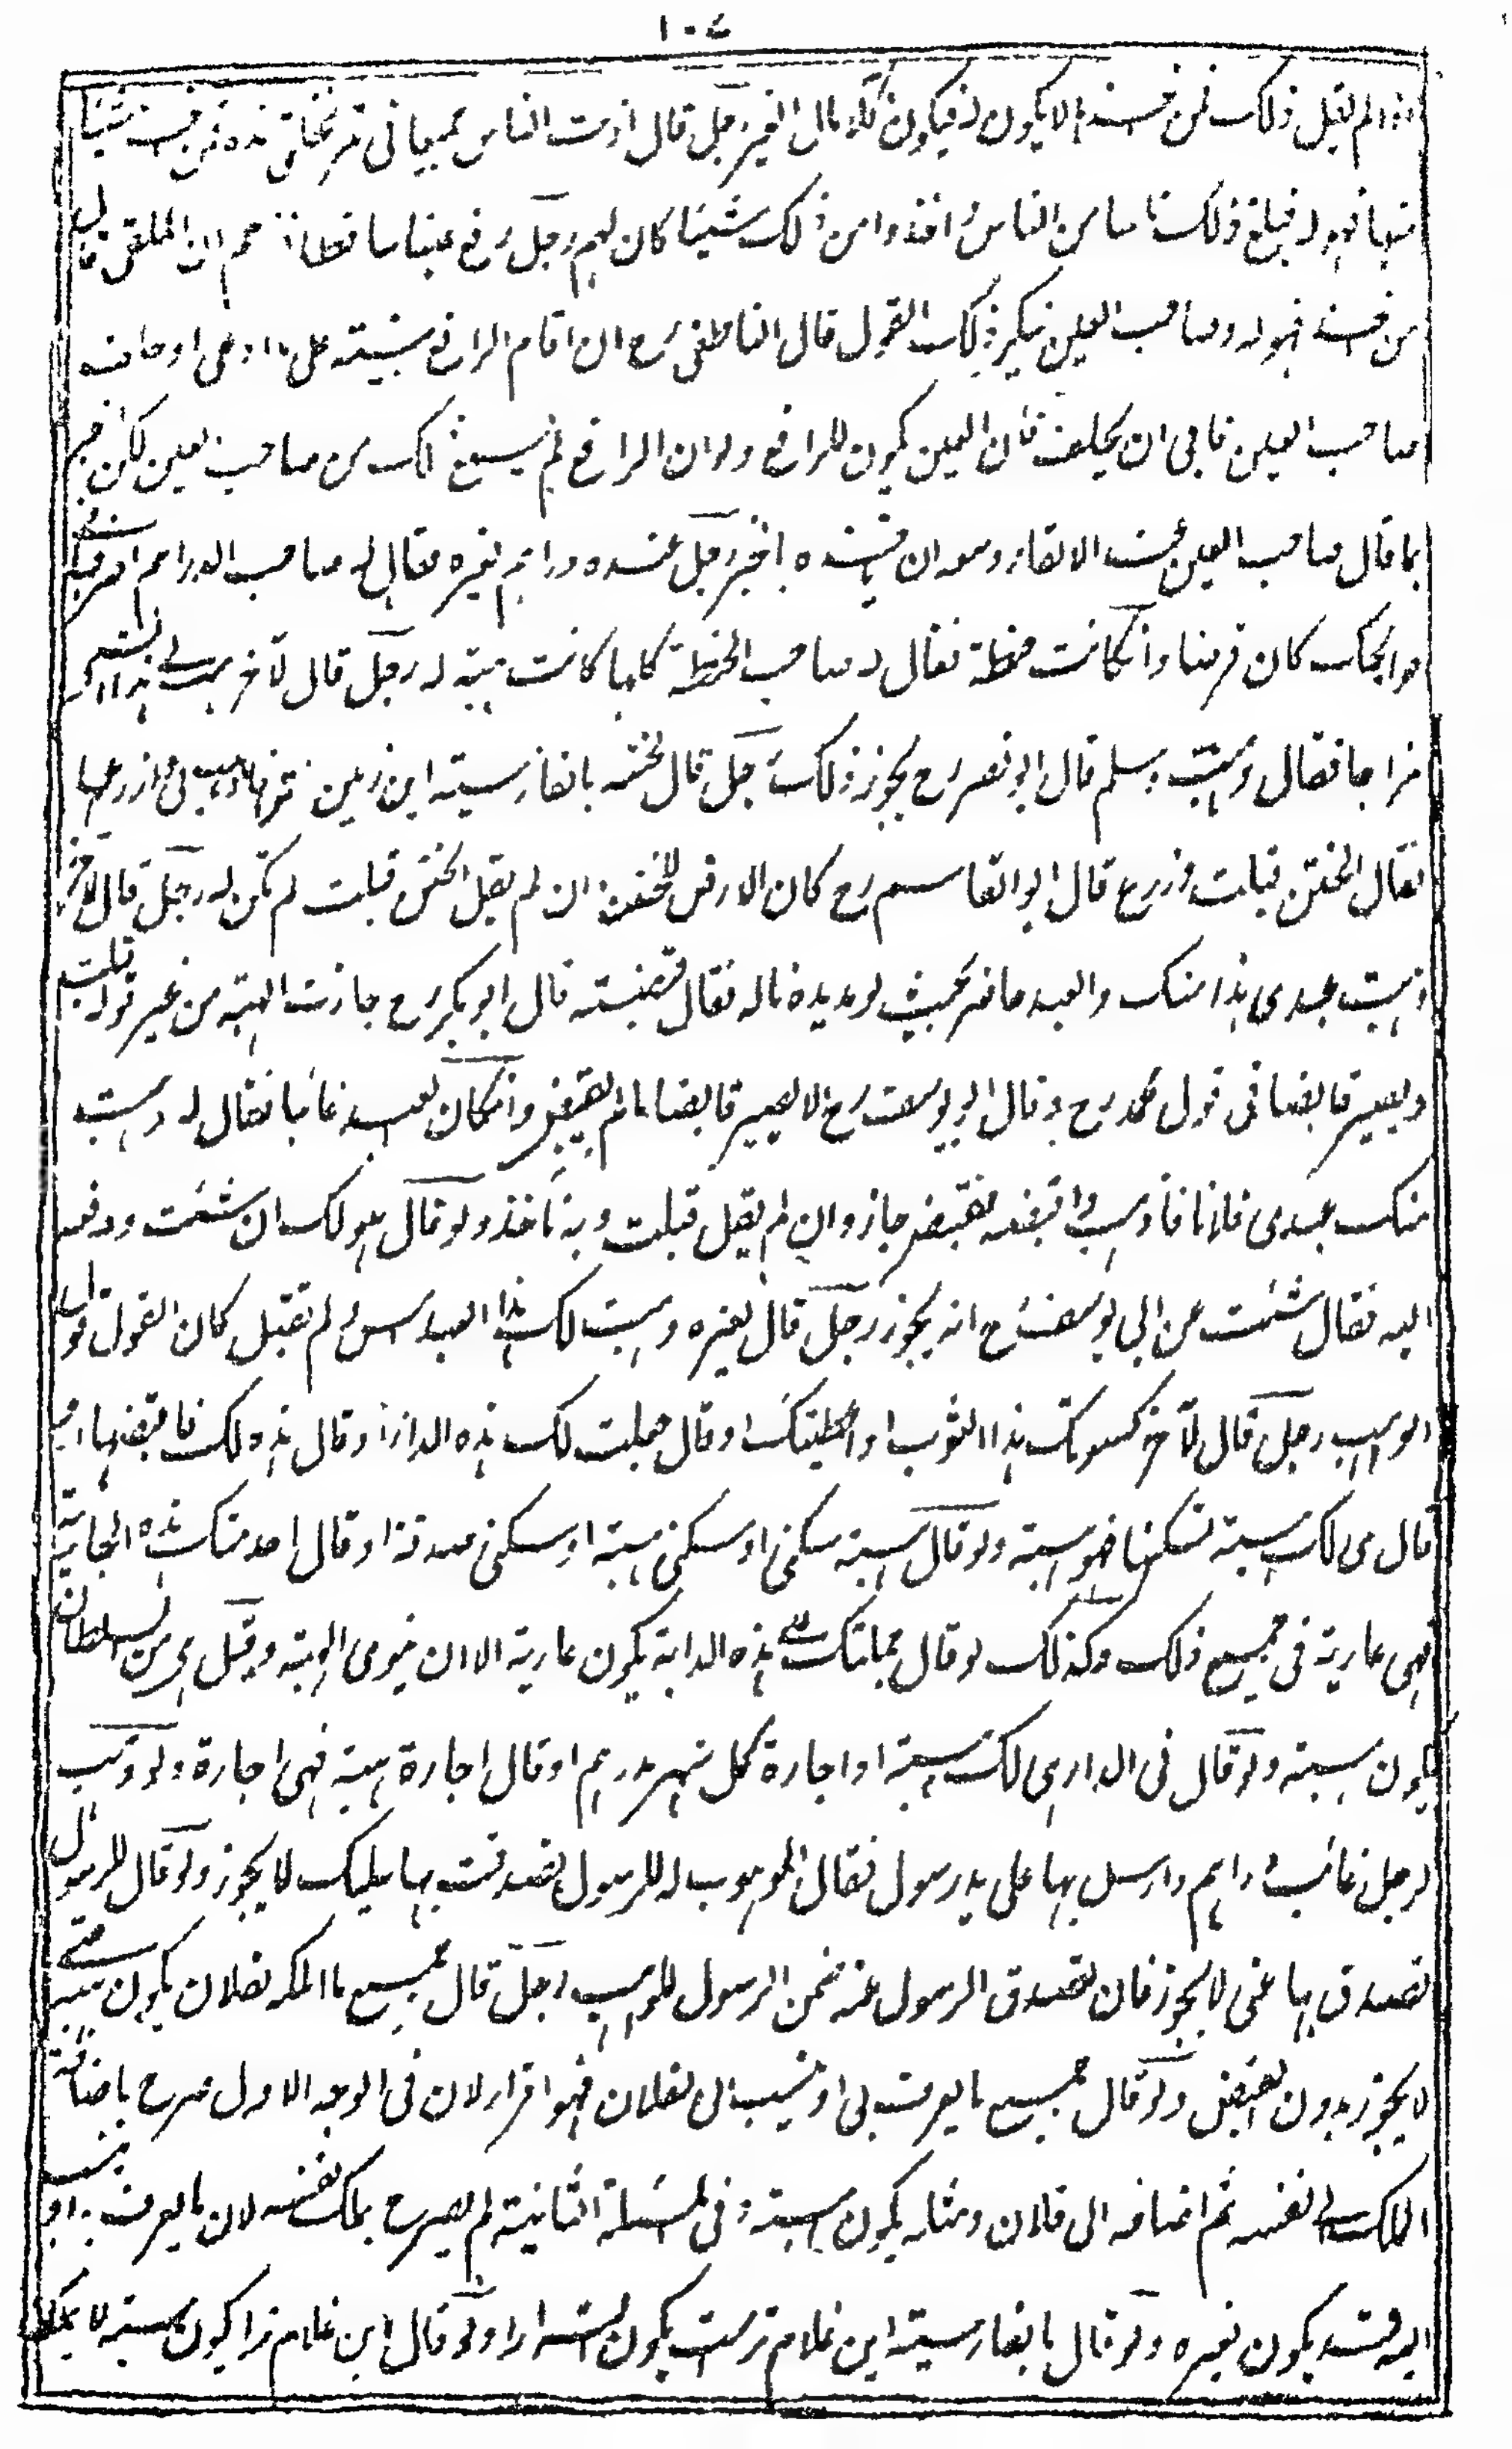 ١٠٤
اذا لم يقل ذلك فمن اخذه لا يكون له فيكون آكلا مال الغير رجل قال اذنت الناس جميعا فى ثمر نخلتى هذه فمن اخذ شيئا
منها فهو له فبلغ ذلك ناسا من الناس و اخذوا من ذلك شيئا كان لهم رجل رفع عينا ساقطا زعم ان الملقى قال
من اخذه فهو له وصاحب العين ينكر ذلك القول قال الناطفى رح ان اقام الرافع بينة على ما ادعى او حلف
صاحب العين فابى ان يحلف فان العين يكون للرافع ولو ان الرافع لم يسمع ذلك من صاحب العين لكن اخبر
بما قال صاحب العين عند الالقاء وسعه ان ياخذه باخبر رجل عنده دراهم لغيره فقال له صاحب الدراهم اصرفها فى
حوائجك كان قرضا وان كانت حنطة فقال له صاحب الحنطة كلها كانت هبة له رجل قال لآخر هب لى هذا الشئ
مزاحا فقال وهبت وسلم قال ابو نصر رح يجوز ذلك رجل قال لختنه بالفارسية اين زمين تو را فاذهب فازرعها
فقال الختن قبلت وزرع قال ابو القاسم رح كان الارض للختن وان لم يقل الختن قبلت لم تكن له رجل قال لآخر
وهبت عبدى هذا منك والعبد حاضر بحيث لو مد يده ناله فقال قبضته قال ابو بكر رح جازت الهبة من غير قوله قبلت
ويصير قابضا فى قول محمد رح وقال ابو يوسف رح لا يصير قابضا ما لم يقبض وان كان العبد غائبا فقال له وهبت
منك عبدى فلانا فاذهب و اقبضه فقبض جاز وان لم يقل قبلت وبه ناخذ ولو قال هو لك ان شئت ودفعه
اليه فقال شئت عن ابى يوسف رح انه يجوز رجل قال لغيره وهبت لك هذا العبد امس ولم تقبل كان القول قول
الواهب رجل قال لآخر كسوتك هذا الثوب او اعطيتك او قال جعلت لك هذه الدار او قال هذه لك فاقبضها
قال هى لك هبة تسكنها فهو هبة ولو قال هبة سكنى او سكنى هبة او سكنى صدقة او قال اخدمتك هذه الجارية
فهى عارية فى جميع ذلك وكذلك لو قال حملتك على هذه الدابة يكون عارية الا ان ينوى الهبة وقيل هى من السلطان
يكون هبة ولو قال فى الدار هى لك هبة او اجارة كل شهر بدرهم او قال اجارة هبة فهى اجارة ولو وهب
لرجل غائب دراهم وارسل بها على يد رسول فقال الموهوب له للرسول تصدقت بها عليك لا يجوز ولو قال للرسول
تصدق بها عنى لا يجوز فان تصدق الرسول عنه ضمن الرسول للواهب رجل قال جميع ما املكه لفلان يكون هبة حتى
لا يجوز بدون القبض ولو قال جميع ما يعرف بى او ينسب الى لفلان فهو اقرار لان فى الوجه الاول صرح باضافة
الملك الى نفسه ثم اضافه الى فلان ومثله يكون هبة وفى المسئلة الثانية لم يصرح بملك نفسه لان ما يعرف به او ينسب
اليه قد يكون لغيره ولو قال بالفارسية اين غلام تراست يكون اقرارا ولو قال اين غلام ترا يكون هبة لا يملك